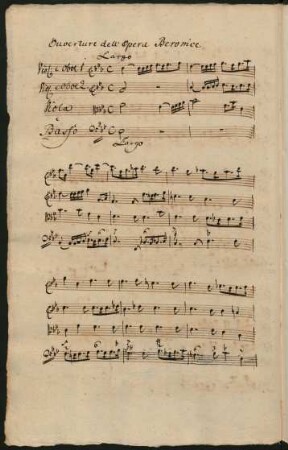 Ouverture dell Opera Beronice
Largo
Viol: e Oboe 1
Viol: e Oboe 2
Viola
Basso
Largo